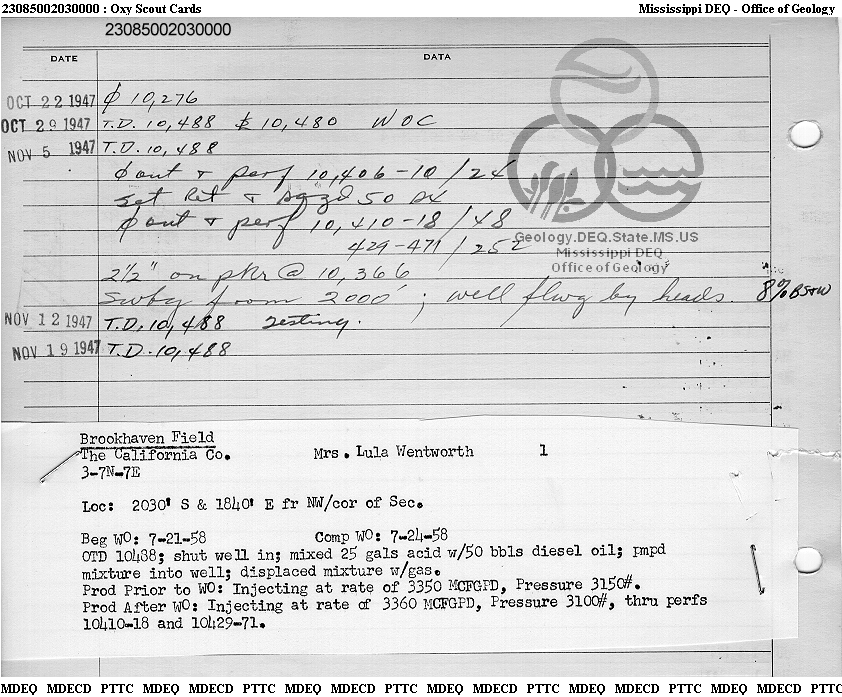 23085002030000 : Oxy Scout Cards Mississippi DEQ - Office of Geology
23085002030000
DATE DATA
OCT 22 1947 ₵ 10,276
OCT 29 1947 T.D. 10,488 10,480 WOC
NOV 5 1947 T.D. 10,488
₵ out + perf 10,406-10/24
Set Ret + sqzd 50 sx
₵ out + perf 10,410-18/48
429-471/252
Geology.DEQ.State.MS.US
Mississippi DEQ
Office of Geology
2½" on pkr @ 10,366
Swbg from 2000'; well flwg by heads. 8% BS+W
NOV 12 1947 T.D. 10,488 Testing.
NOV 19 1947 T.D. 10,488
Brookhaven Field
The California Co. Mrs. Lula Wentworth 1
3-7N-7E
Loc: 2030' S & 1840' E fr NW/cor of Sec.
Beg WO: 7-21-58 Comp WO: 7-24-58
OTD 10488; shut well in; mixed 25 gals acid w/50 bbls diesel oil; pmpd
mixture into well; displaced mixture w/gas.
Prod Prior to WO: Injecting at rate of 3350 MCFGPD, Pressure 3150#.
Prod After WO: Injecting at rate of 3360 MCFGPD, Pressure 3100#, thru perfs
10410-18 and 10429-71.
MDEQ MDECD PTTC MDEQ MDECD PTTC MDEQ MDECD PTTC MDEQ MDECD PTTC MDEQ MDECD PTTC MDEQ MDECD PTTC